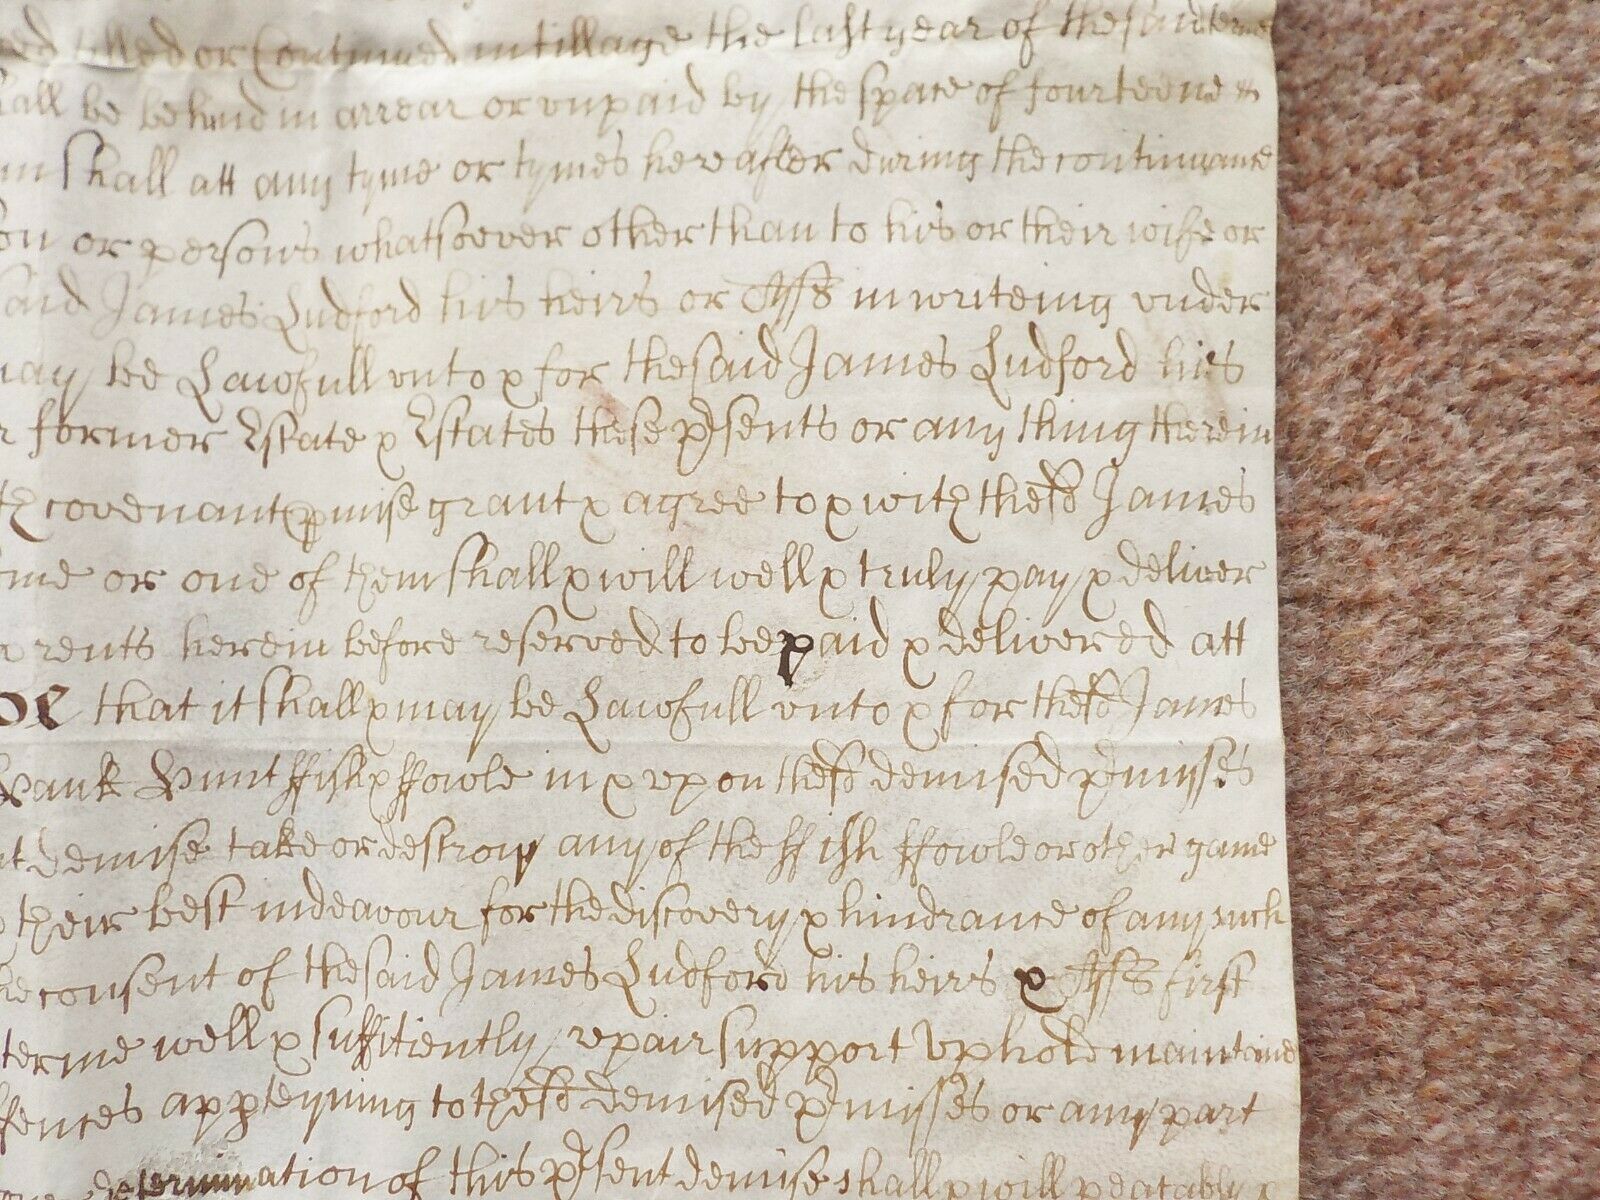 tilled or Continued in tillage the last year of the said terme
shall be behind in arrear or vnpaid by the space of fourteene
shall att any tyme or tymes hereafter during the continuance
or persons whatsoever other than to his or their wife or
said James Ludford his heirs or Asss in writeing vnder
may be Lawfull vnto & for the said James Ludford his
former Estate & Estates these psents or any thing therein
covenant pmise grant & agree to & with the sd James
or one of them shall & will well & truly pay & deliver
rents herein before reserved to be paid & delivered att
that it shall & may be Lawfull vnto & for the sd James
Hawk Hunt ffish & ffowle in & vpon the sd demised pmisses
demise take or destroy any of the ffish ffowle or other game
their best indeavour for the discovery & hindrance of any such
consent of the said James Ludford his heirs & Asss first
terme well & suffitiently repair support vphold maintaine
ffences appteyning to the sd demised pmysses or any part
determination of this psent demise shall & will peaceably &